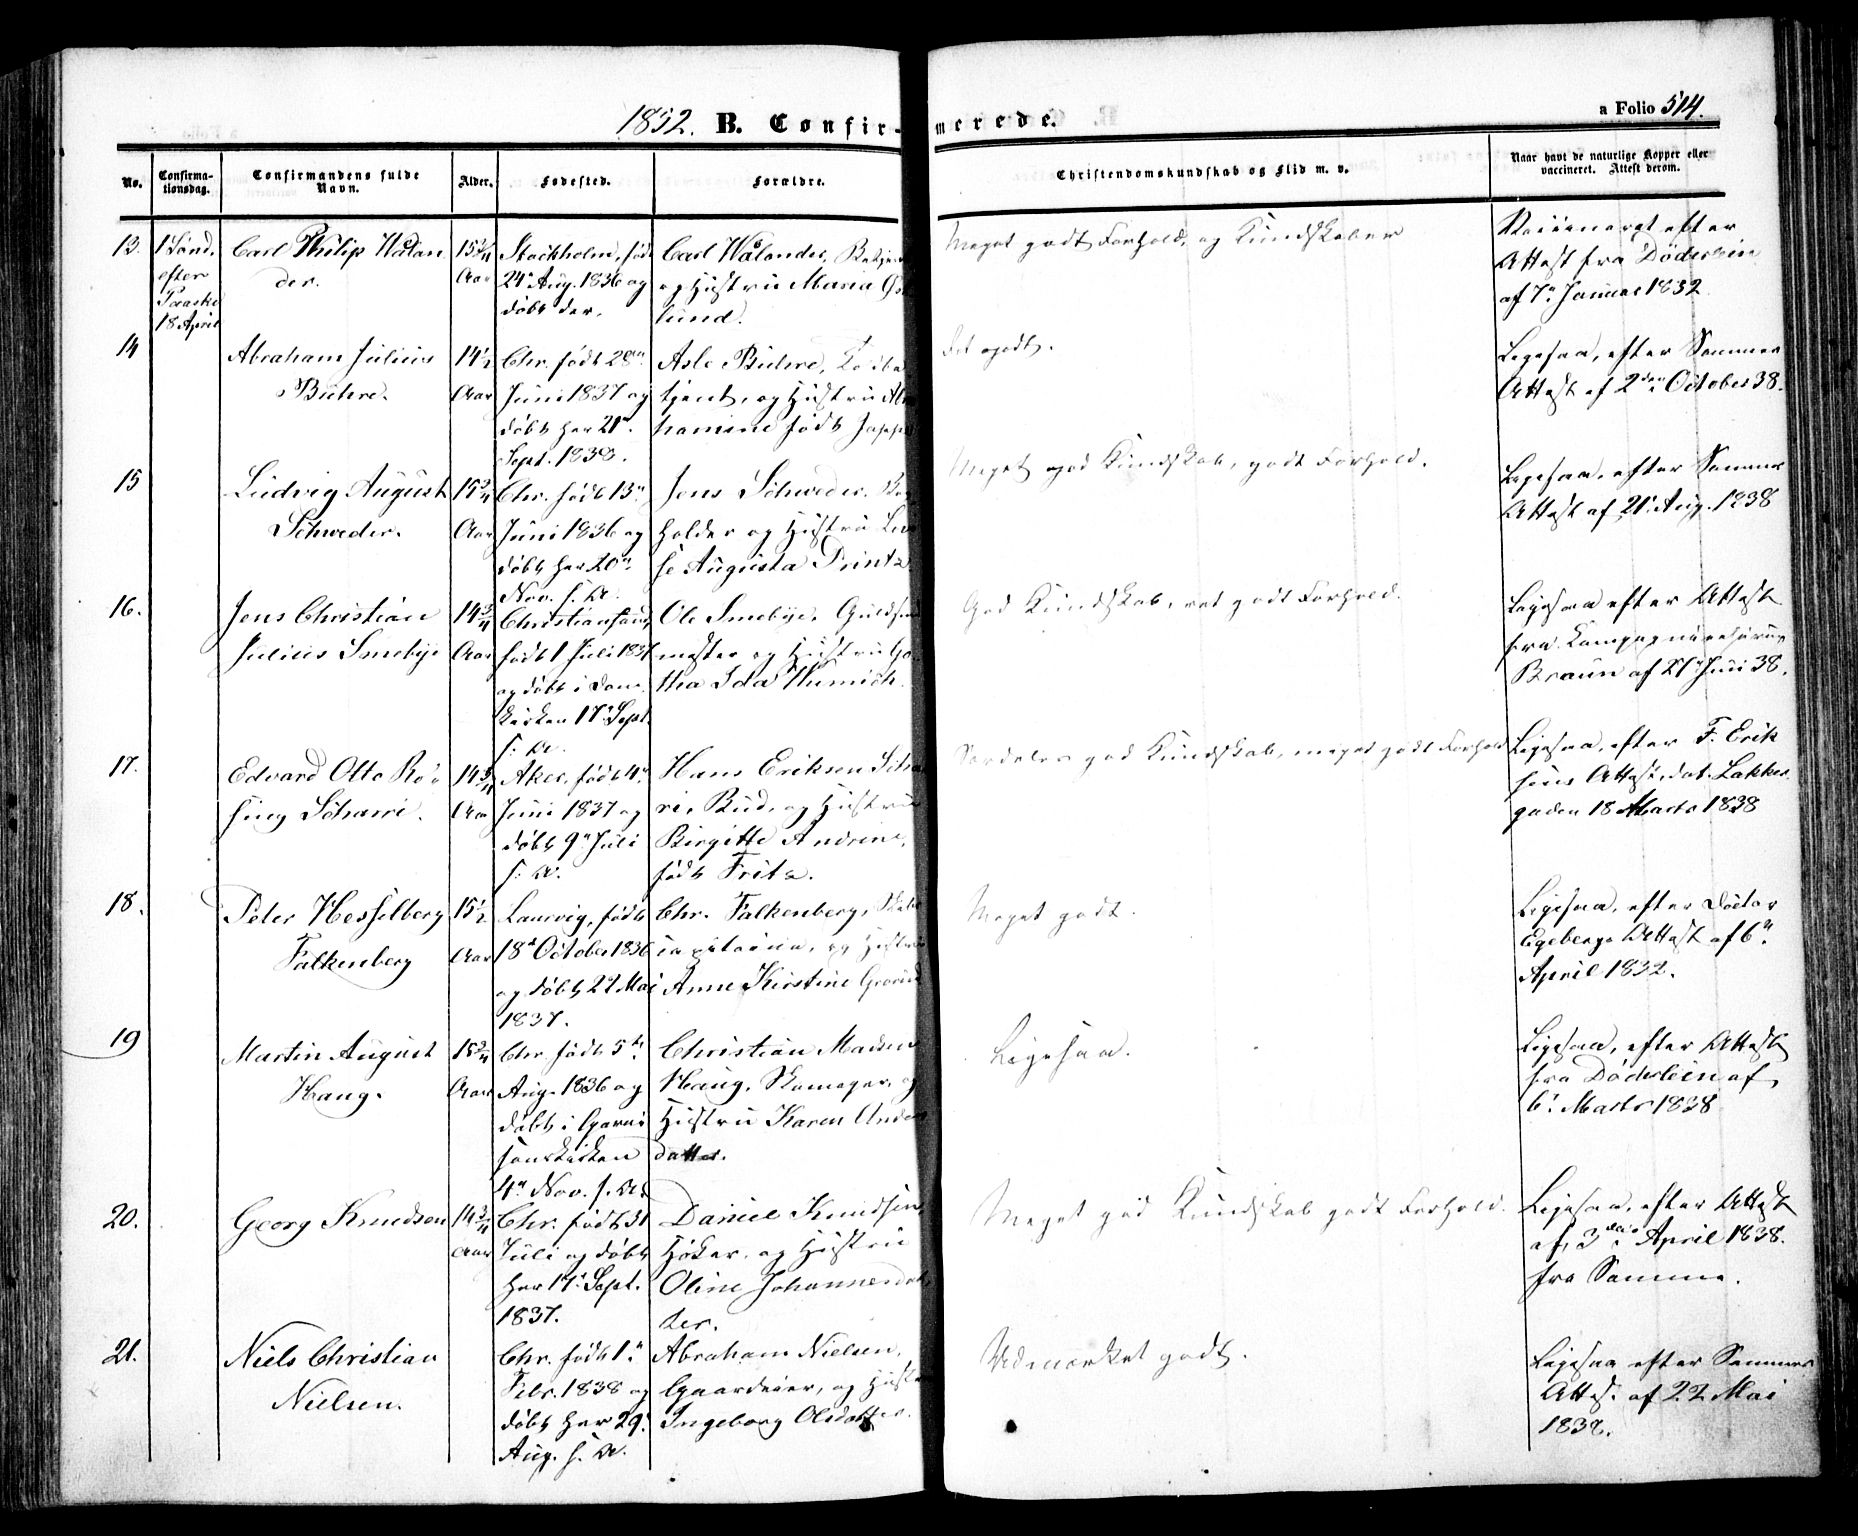 1852. B. Confirmerede.
a Folio 514.
No.
Confirmationsdag.
Confirmandens fulde Navn.
Alder.
Fødested.
Forældre.
Christendomskundskab og Flid m. v.
Naar havt de naturlige Kopper eller vaccineret. Attest derom.
13.
1 Sønd.
efter
Paaske
18 April
Carl Philip Wålan
der.
15¾
Aar
Stockholm, fød
24 Aug. 1836 og
døbt der.
Carl Wålander,
og Hustru Maria
lund.
Meget godt Forhold, og Kundskaber
Vaccineret efter
Attest fra Døderlein
af 7. Januar 1852
14
Abraham Julius
Buhre.
14½
Aar
Chr. født 28
Juni 1837 og
døbt her 21
Sept. 1838.
Asle Buhre, Toldbe
tjent, og Hustru
hamine født
godt.
Ligesaa, efter Sammes
Attest af 2den October 38.
15
Ludvig August
Schweder.
15¾
Aar
Chr. født 13
Juni 1836 og
døbt her 20
Nov. s. A.
Jens Schweder, Bog
holder og Hustru Lovi
se Augusta Printz
Meget god Kundskab, godt Forhold.
Ligesaa, efter Sammes
Attest af 21. Aug. 1838
16.
Jens Christian
Julius Smebye
14¾
Aar
Christiansand,
født 1 Juli 1837
og døbt i Dom
kirken 17 Sept.
s. A.
Ole Smebye, Guldsmed
mester og Hustru
tha Ida
God Kundskab, ret godt Forhold.
Ligesaa efter Attest
fra Compagniechirurg
Braun af 27 Juni 38.
17.
Edvard Otto Rø
sing Scharri.
14¾
Aar
Aker, født 4
Juni 1837 og
døbt 9 Juli
s. A.
Hans Eriksen Schar
ri, Bud, og Hustru
Birgitte Andrine,
født Fritz.
Særdeles god Kundskab, meget godt Forhold
Ligesaa, efter F. Erik
sens Attest, dat. Lakke
gaden 18 Marts 1838
18.
Peter Hesselberg
Falkenberg
15½
Aar
Laurvig, født
18 October 1836
og døbt 22 Mai
1837.
Chr. Falkenberg, Skibs
capitaine, og Hustru
Anne Kirstine
Meget godt.
Ligesaa, efter Doctor
Egebergs Attest af 6
April 1852.
19
Martin August
Haug.
15¾
Aar
Chr. født 5
Aug. 1836 og
døbt i Garni
sonskirken
4 Nov. s. A.
Christian Madsen
Haug, Skomager, og
Hustru Karen Anders
datter.
Ligesaa.
Ligesaa, efter Attest
fra Døderlein af
6. Marts 1838
20.
Georg Knudsen
14¾
Aar
Chr. født 31
Juli og døbt
her 17 Sept.
1837.
Daniel Knudsen,
Høker, og Hustru
Oline Johannesdat
ter.
Meget god Kundskab godt Forhold.
Ligesaa, efter Attest
af 3die April 1838.
fra Samme.
21.
Niels Christian
Nielsen.
Chr. født 1
Febr. 1838 og
døbt her 29
Aug. s. A.
Abraham Nielsen,
Gaardeier, og Hustru
Ingeborg Olsdatter.
Udmærket godt.
Ligesaa efter Sammes
Attest af 22 Mai
1838.